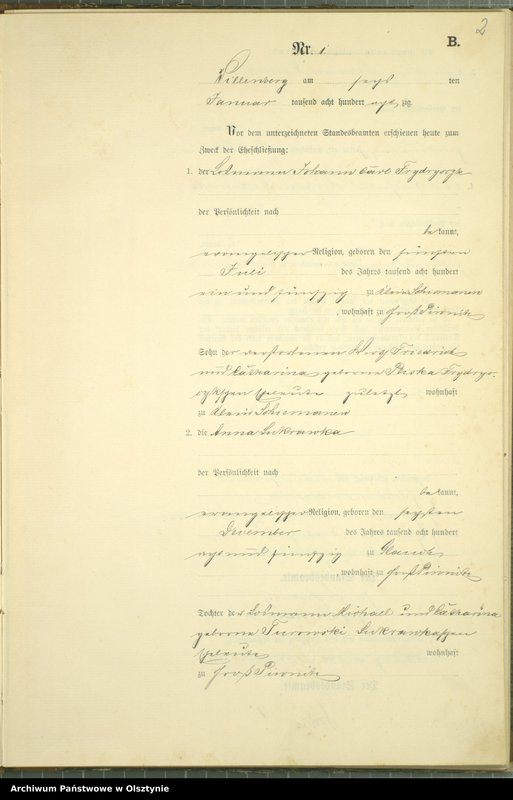 2
B.
Nr. 1.
Willenberg am sechs ten
Januar tausend acht hundert achtzig.
Vor dem unterzeichneten Standesbeamten erschienen heute zum
Zweck der Eheschließung:
1. der Losmann Johann Carl Frydryczyk
der Persönlichkeit nach
bekannt,
evangelischer Religion, geboren den fünften
Juli des Jahrs tausend acht hundert
ein und fünfzig zu Klein Schiemanen
, wohnhaft zu Groß Piwnitz
Sohn der verstorbenen Friedrich
und Catharina geborene Frydry-
czykschen Eheleute zuletzt wohnhaft
zu Klein Schiemanen
2. die Anna Sukrawka
der Persönlichkeit nach
bekannt,
evangelischer Religion, geboren den sechsten
December des Jahrs tausend acht hundert
acht und fünfzig zu
, wohnhaft zu Groß Piwnitz
Tochter der Losmann Michael und Catharina
geborene Turowski Sukrawkaschen
Eheleute wohnhaft
zu Groß Piwnitz
Archiwum Państwowe w Olsztynie